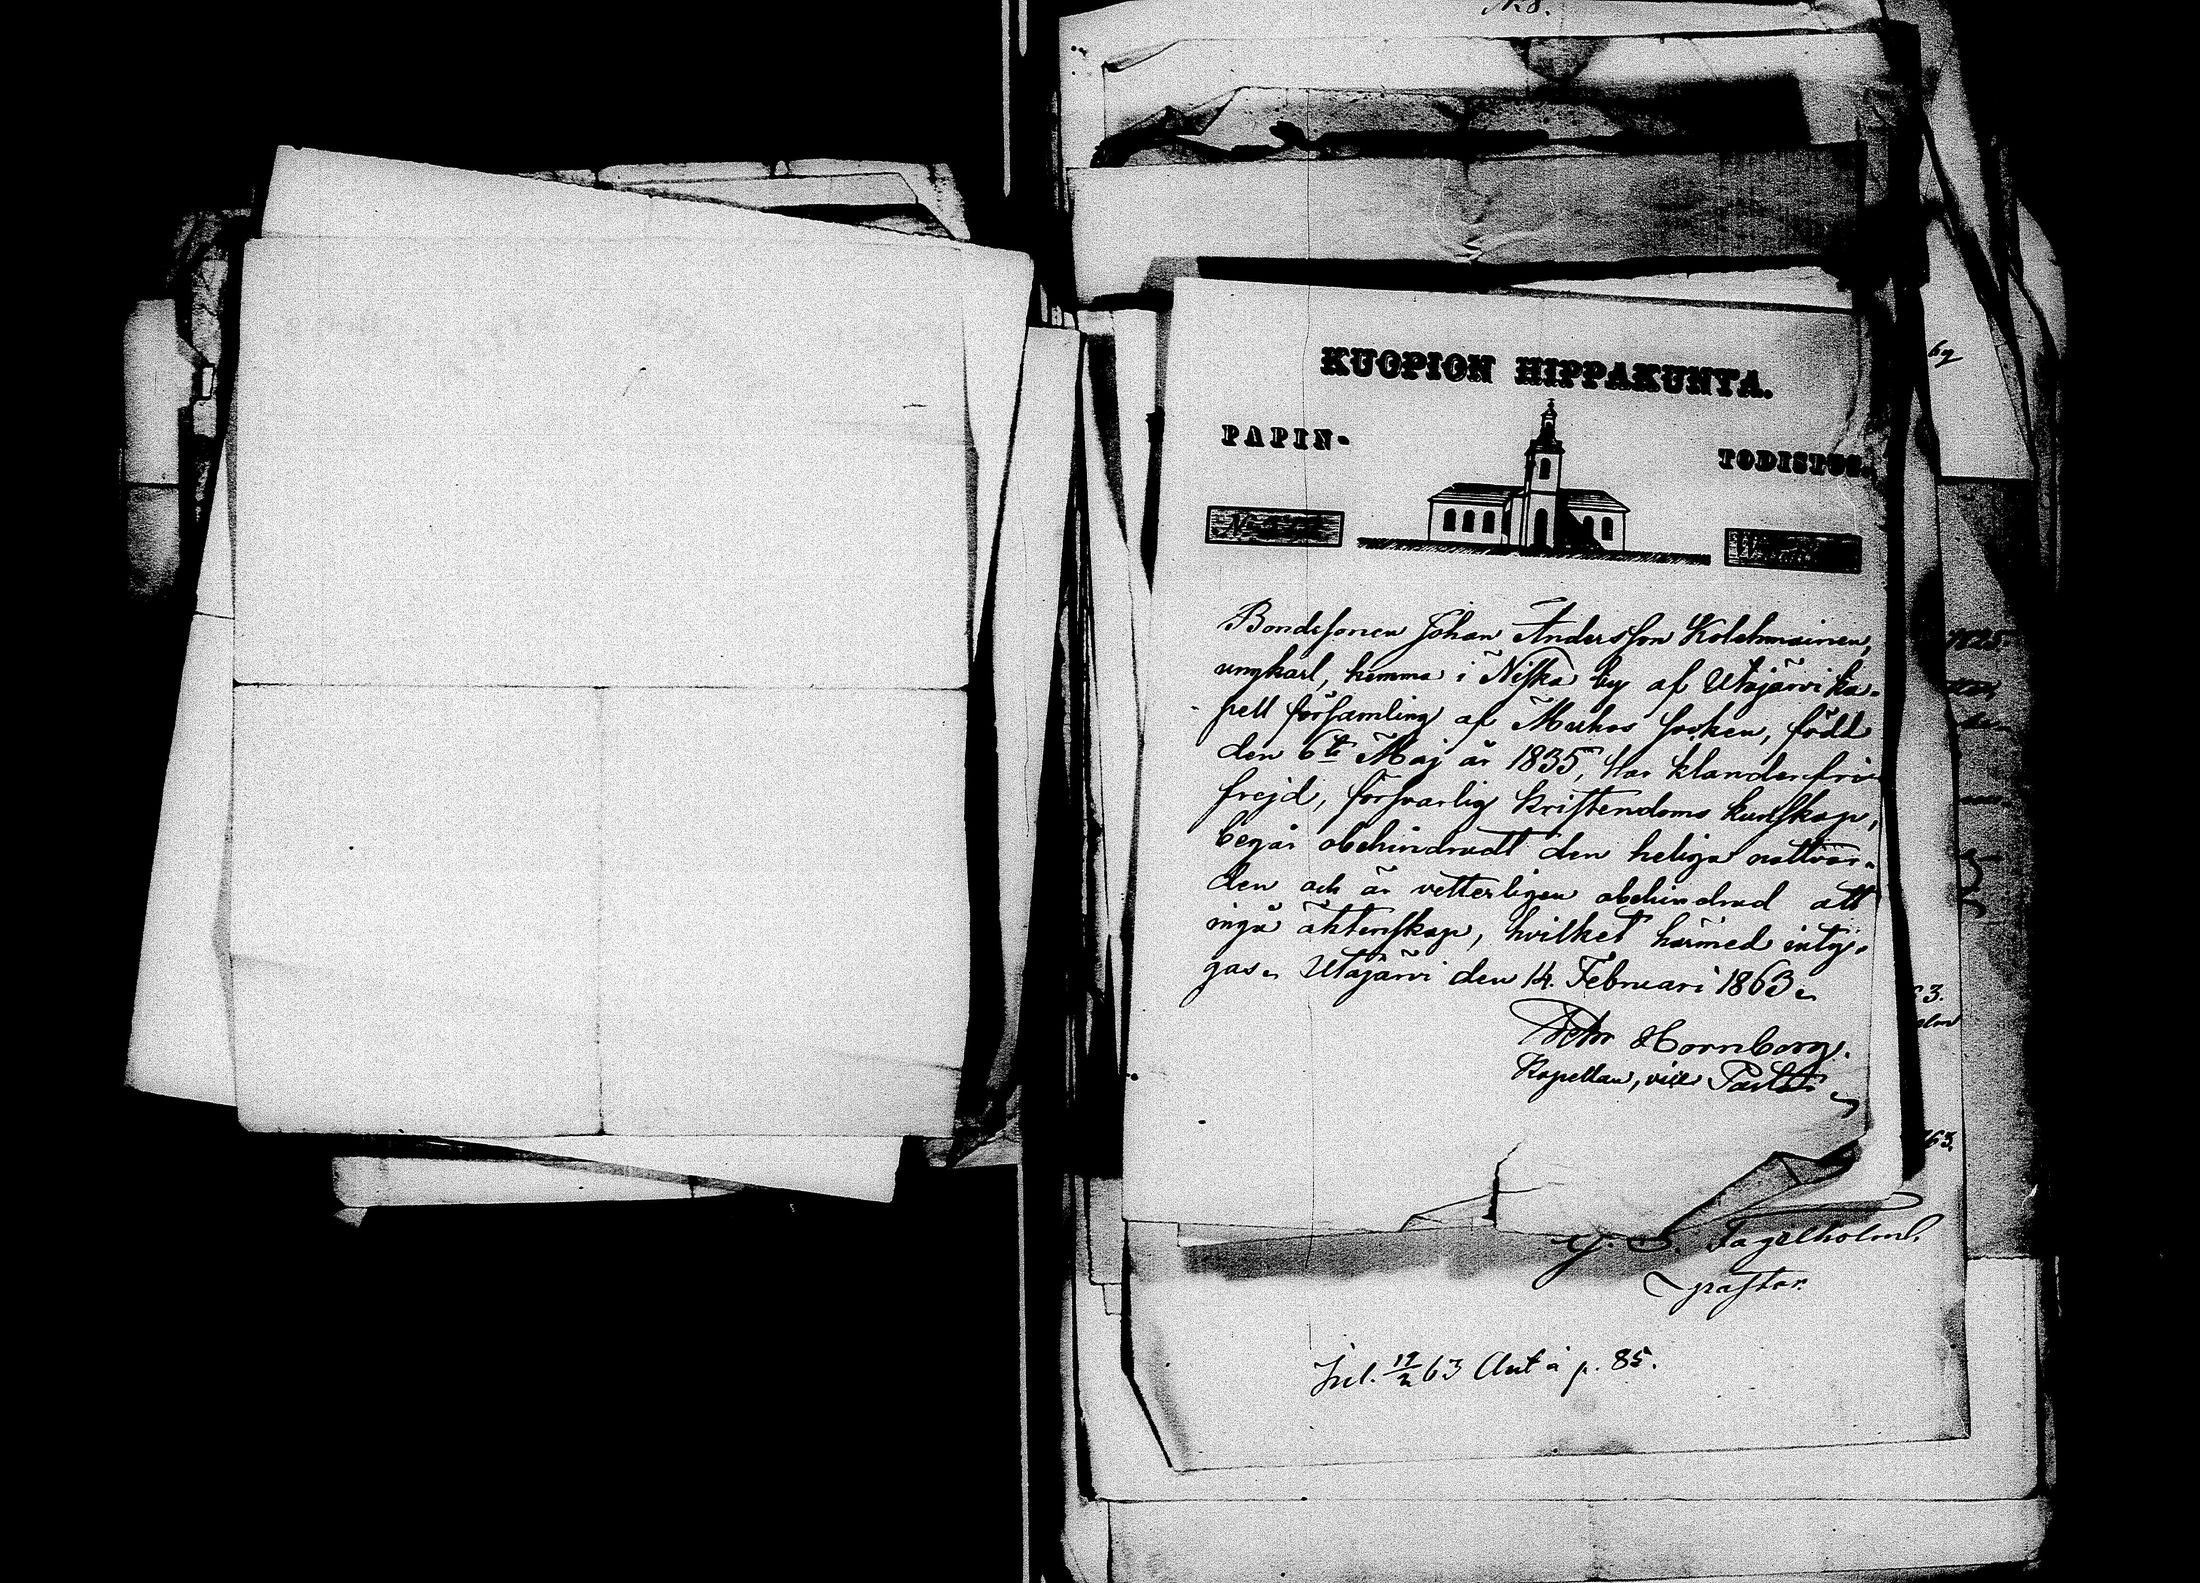 No 8.
KUOPION HIPPAKUNTA.
PAPIN-
TODISTUS.
No
Bondesonen Johan Andersson Kolehmainen,
ungkarl, hemma i Niska by af Utajärvi ka-
pell församling af Muhos socken, född
den 6te Maj år 1835, har klanderfri
frejd, försvarlig kristendoms kunskap,
begår obehindradt den heliga nattvar-
den och är vetterligen obehindrad att
ingå äktenskap, hvilket härmed intyg-
gas. Utajärvi den 14. Februari 1863.
Hornborg.
Kapellan, vice Pastor
Fagelholm.
pastor.
19/2 63 p. 85.
1825
63.